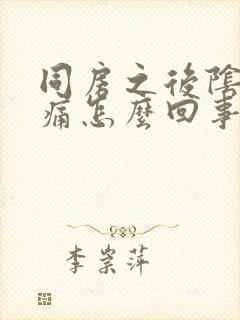 同房之後陰
痛怎麼回事
李崇萍